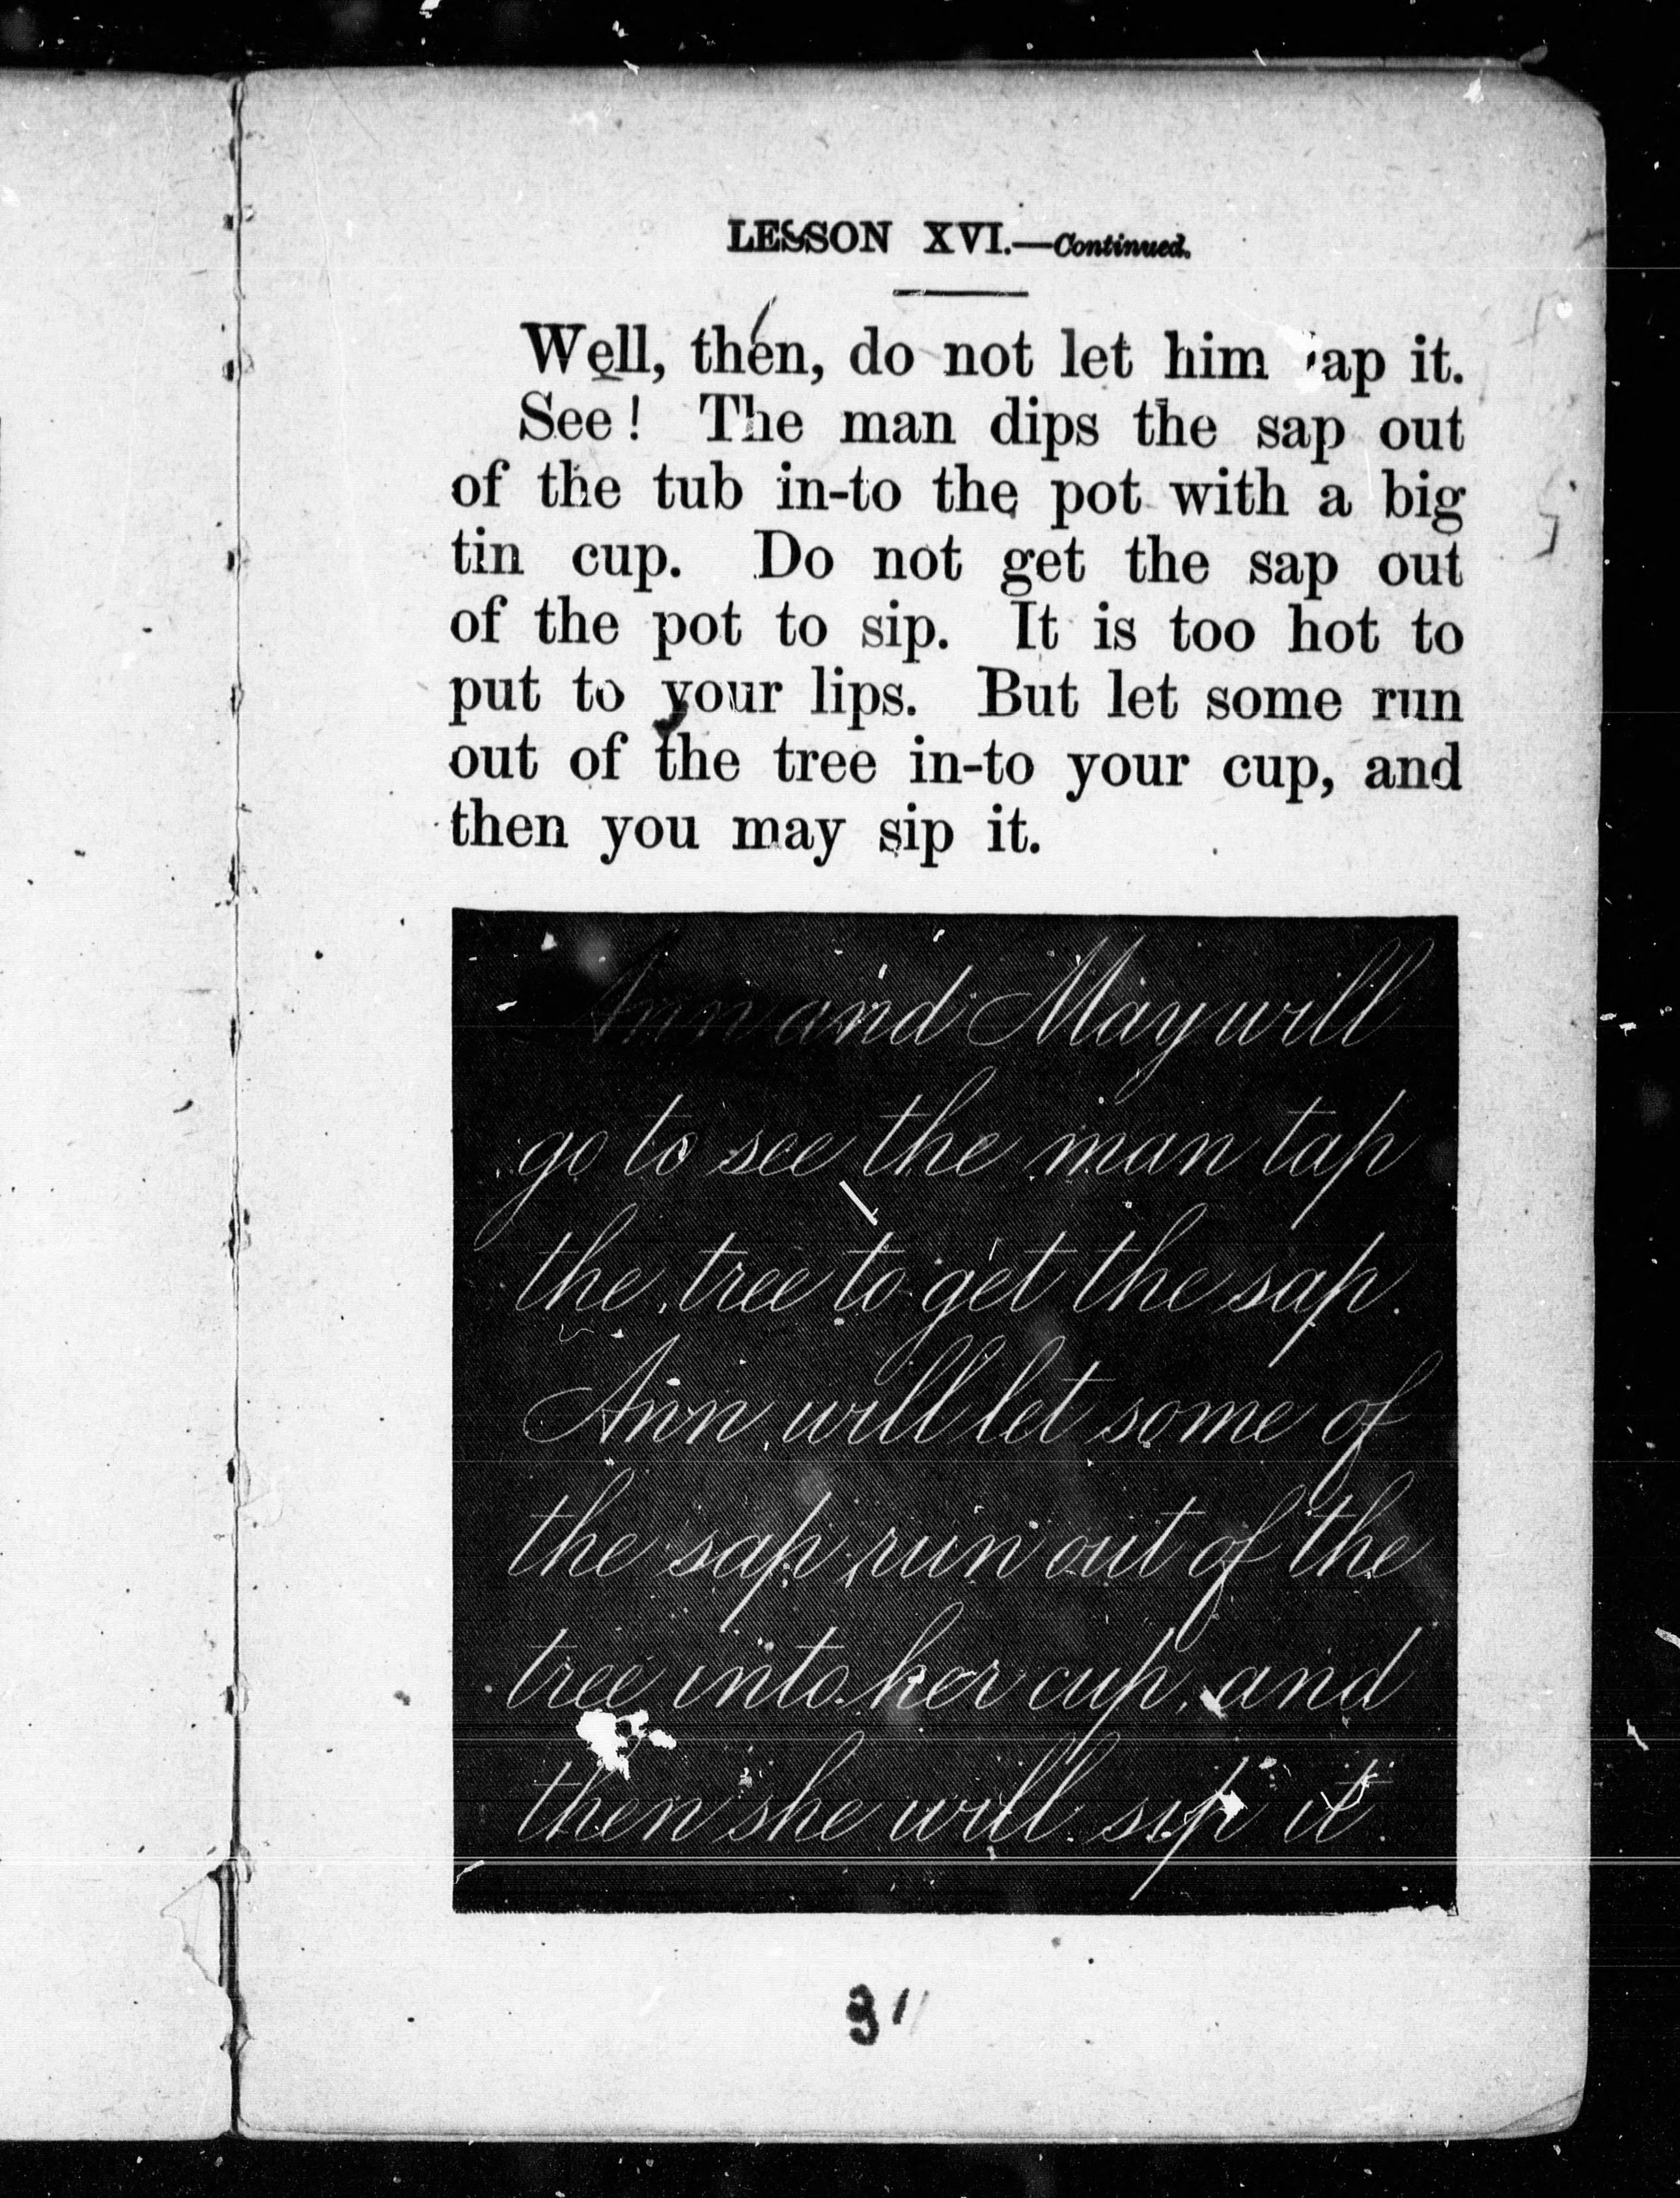 LESSON XVI.—Continued.
Well, then, do not let him it.
See! The man dips the sap out
of the tub in-to the pot with a big
tin cup. Do not get the sap out
of the pot to sip. It is too hot to
put to your lips. But let some run
out of the tree in-to your cup, and
then you may sip it.
Ann and May will
go to see the man tap
the tree to get the sap.
Ann will let some of
the sap run out of the
tree into her cup, and
then she will sip it.